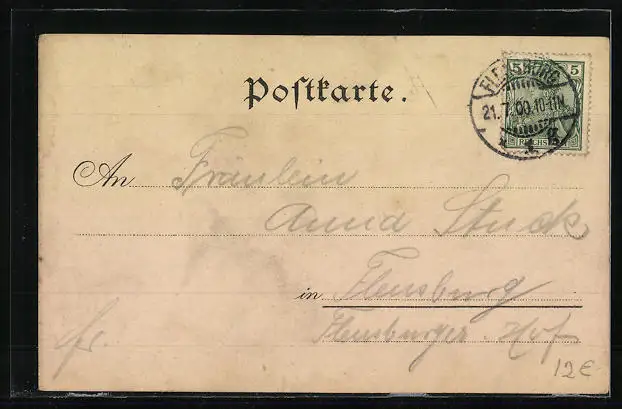 Postkarte.
5 5
FLENSBURG
21.7.00.10-11N.
* 1 g
REICHSPOST
An Fräulein
Anna Stuck
in Flensburg
Flensburger Hof
fr.
12€